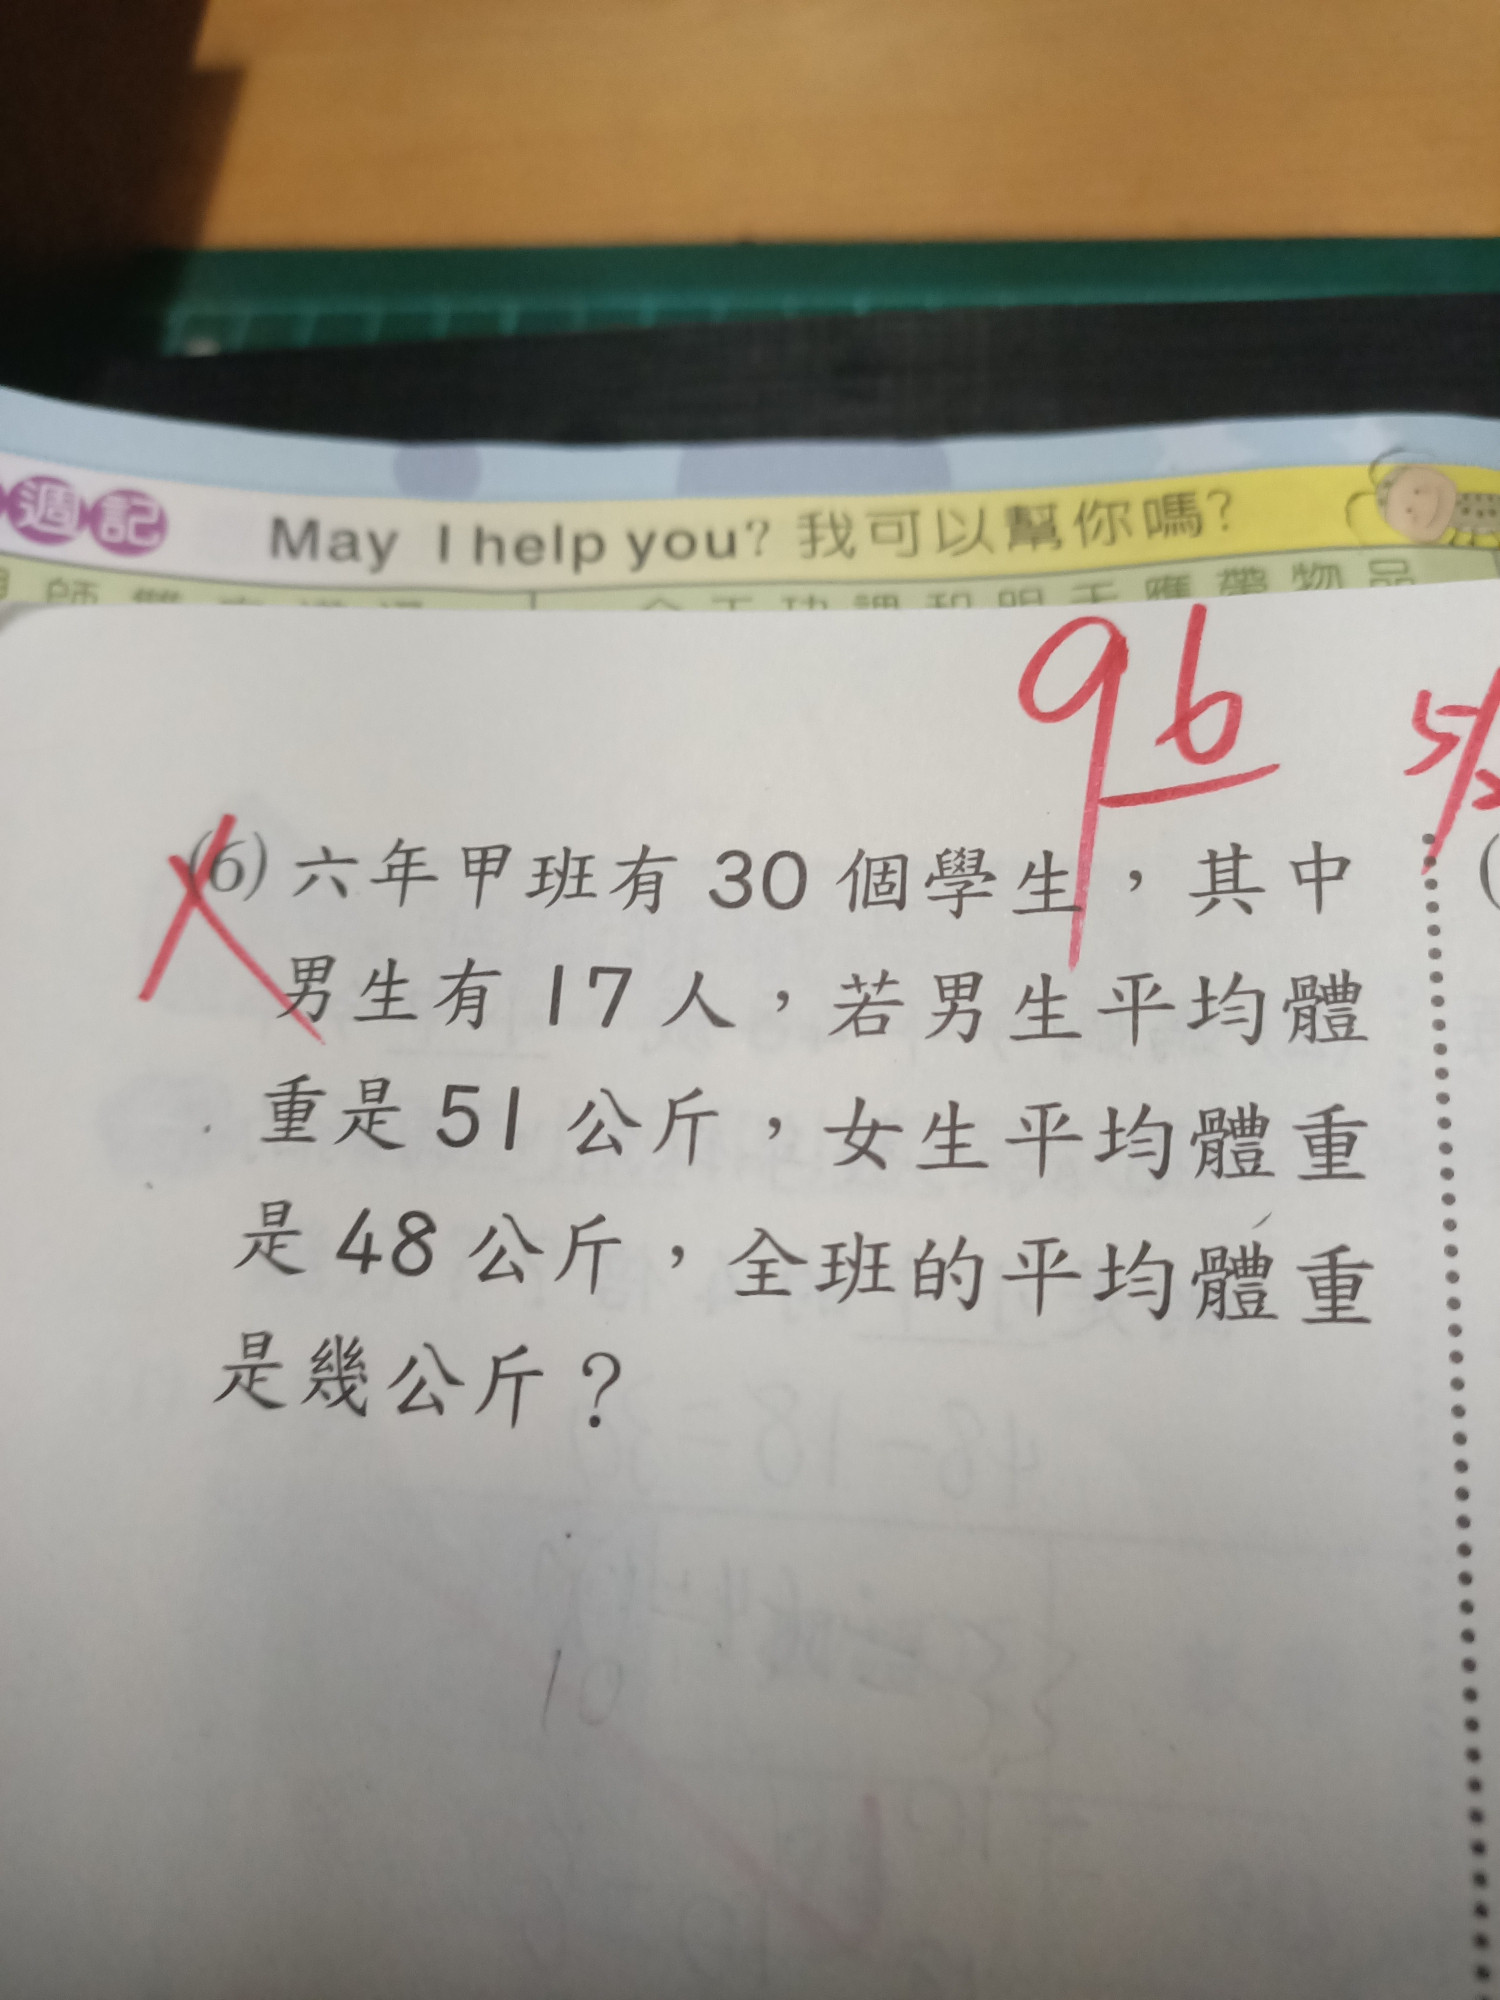 週記 May I help you? 我可以幫你嗎?
96
5/
(6) 六年甲班有 30 個學生，其中
男生有 17 人，若男生平均體
重是 51 公斤，女生平均體重
是 48 公斤，全班的平均體重
是幾公斤？
10